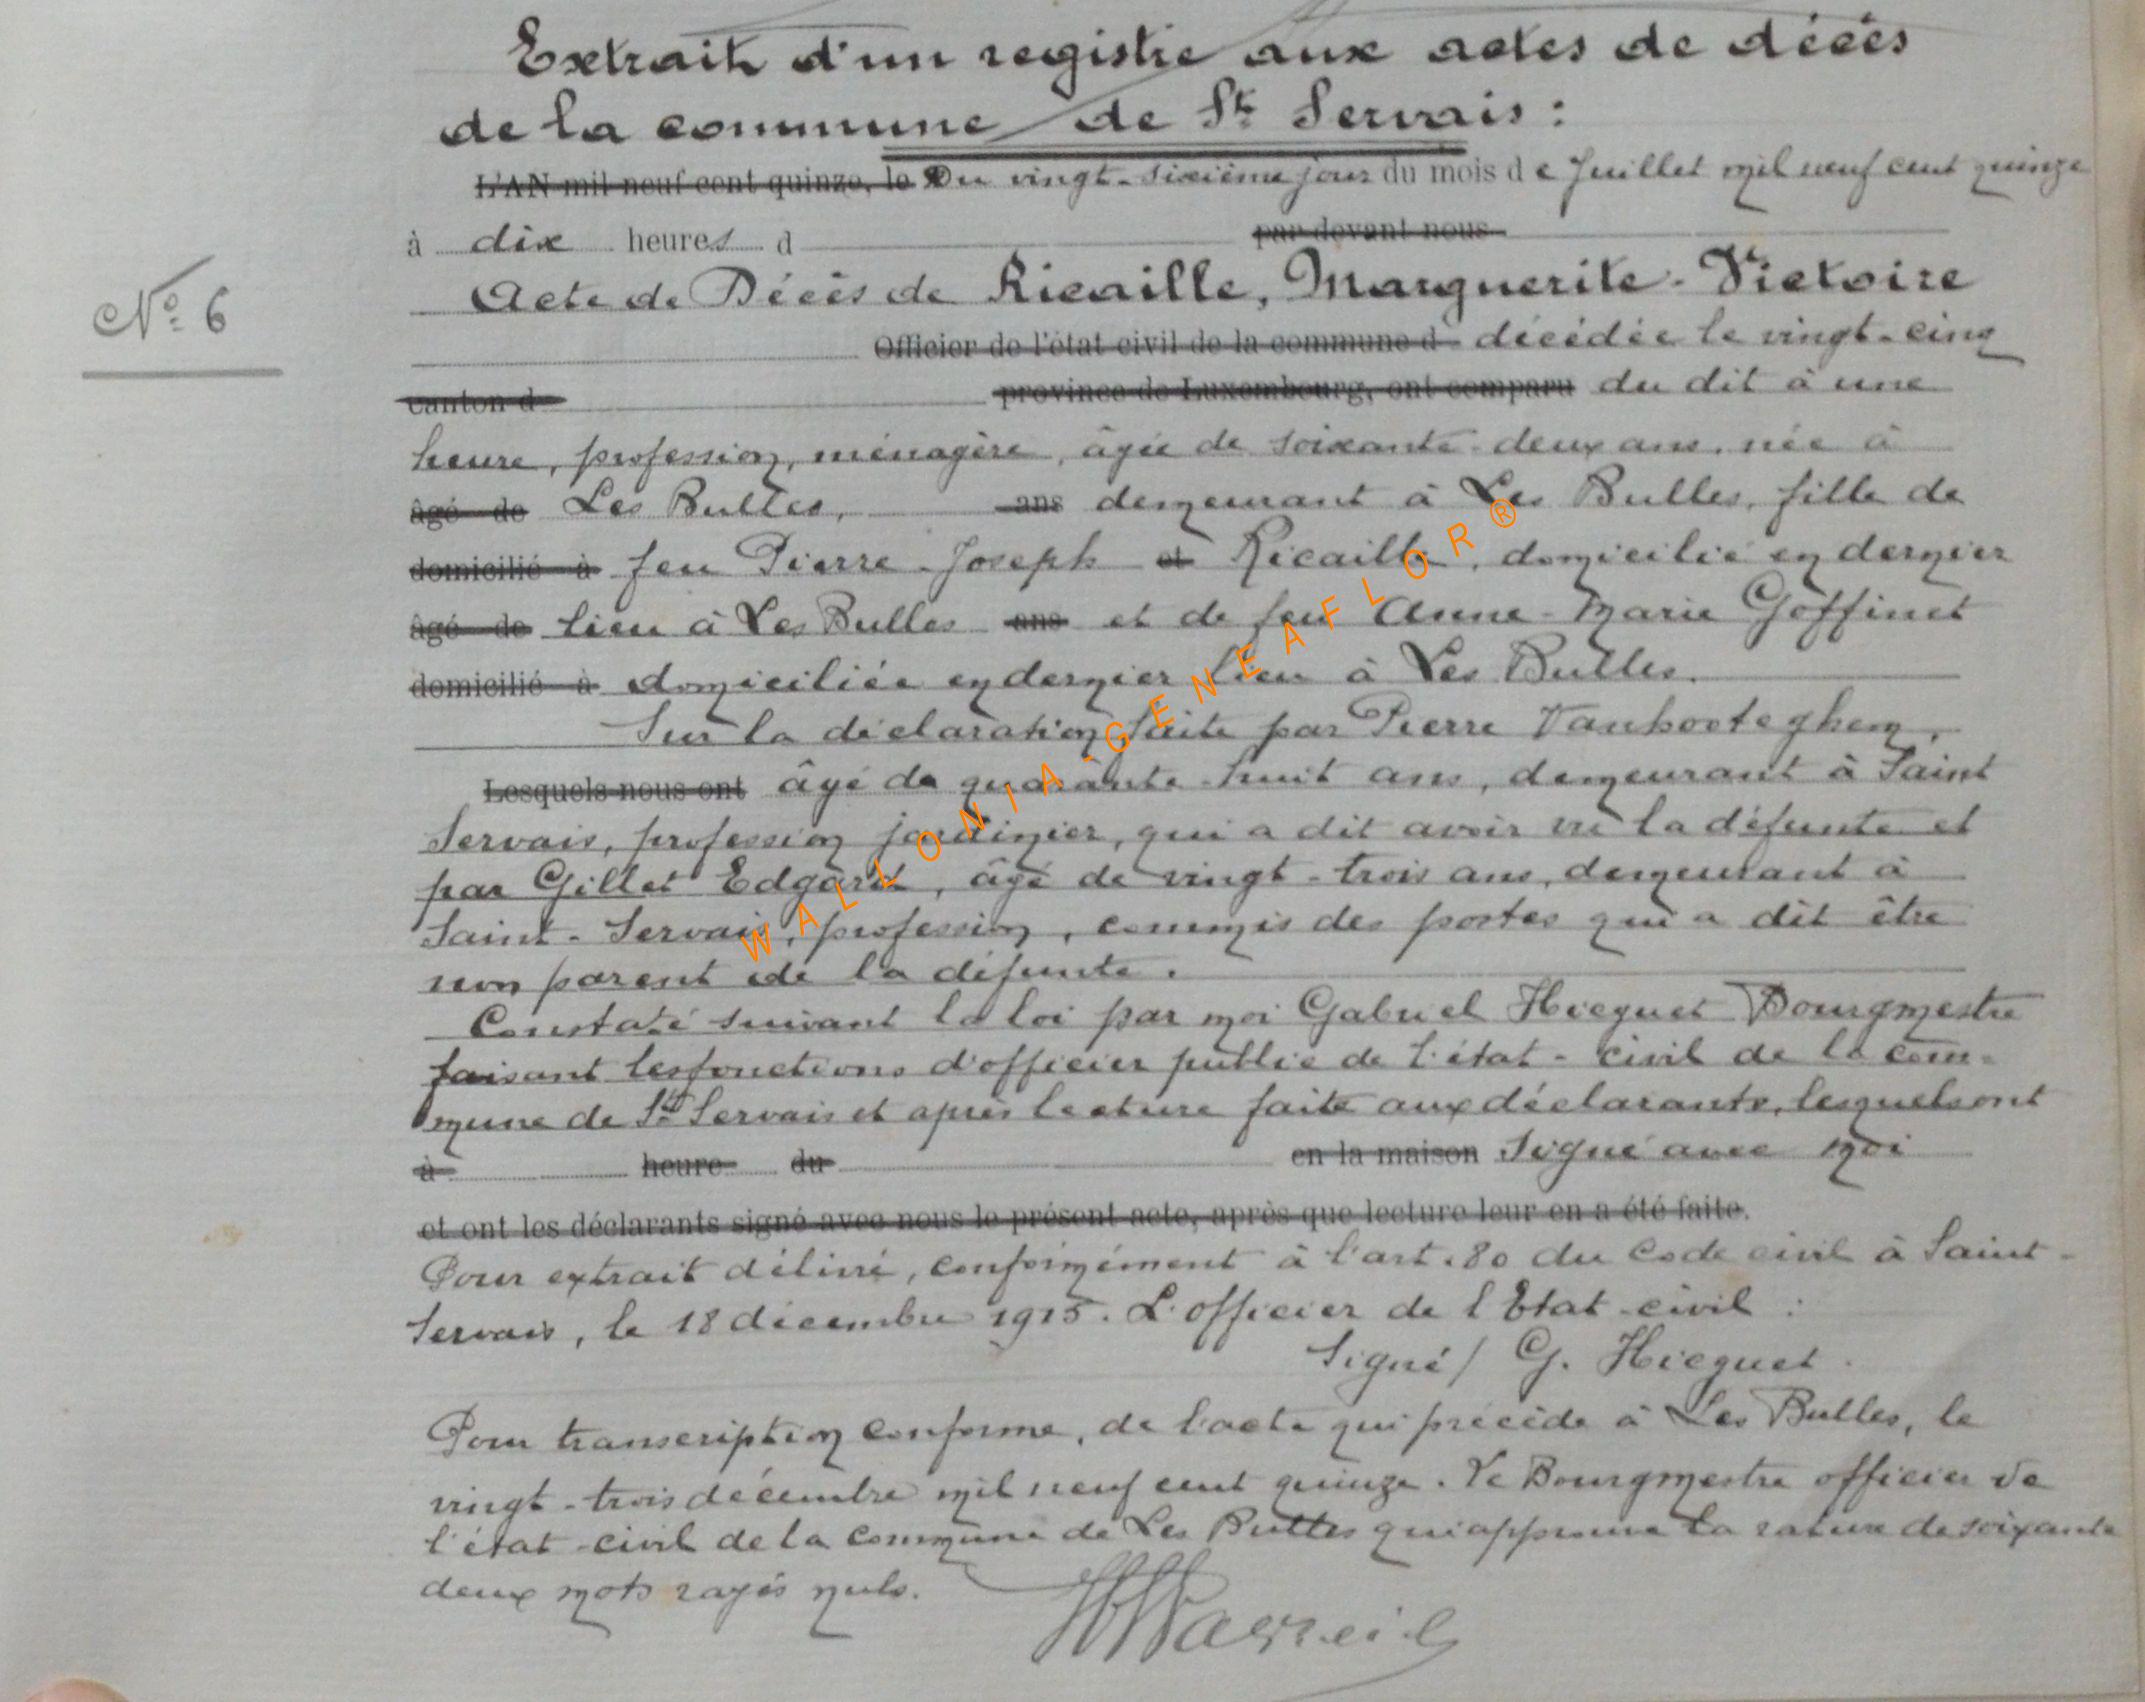 Extrait d'un registre aux actes de décès
de la commune de St Servais :
L'AN mil neuf cent quinze, le Du vingt-sixième jour du mois de Juillet mil neuf cent quinze
à dix heures d par devant nous
N° 6
Acte de Décès de Ricaille, Marguerite-Victoire
Officier de l'état civil de la commune d décédée le vingt-cinq
canton d province de Luxembourg, ont comparu du dit à une
heure, profession, ménagère, âgée de soixante-deux ans, née à
âgé de Les Bulles, ans demeurant à Les Bulles, fille de
domicilié à feu Pierre-Joseph et Ricaille, domicilié en dernier
âgé de lieu à Les Bulles ans et de feu Anne-Marie Goffinet
domicilié à domiciliée en dernier lieu à Les Bulles.
Sur la déclaration faite par Pierre Vanhooteghem,
Lesquels nous ont âgé de quarante-huit ans, demeurant à Saint
Servais, profession jardinier, qui a dit avoir vu la défunte et
par Gillet Edgard, âgé de vingt-trois ans, demeurant à
Saint-Servais, profession, commis des postes qui a dit être
non parent de la défunte.
WALLONIA-GENEAFLOR®
Constaté suivant la loi par moi Gabriel Hicguet Bourgmestre
faisant les fonctions d'officier public de l'état-civil de la com-
mune de St Servais et après lecture faite aux déclarants, lesquels ont
à heure du en la maison Signé avec moi
et ont les déclarants signé avec nous le présent acte, après que lecture leur en a été faite.
Pour extrait délivré, conformément à l'art. 80 du Code civil à Saint-
Servais, le 18 décembre 1915. L'officier de l'Etat-civil :
Signé/ G. Hicguet.
Pour transcription conforme, de l'acte qui précède à Les Bulles, le
vingt-trois décembre mil neuf cent quinze. Le Bourgmestre officier de
l'état-civil de la commune de Les Bulles qui approuve la rature de soixante
deux mots rayés nuls.